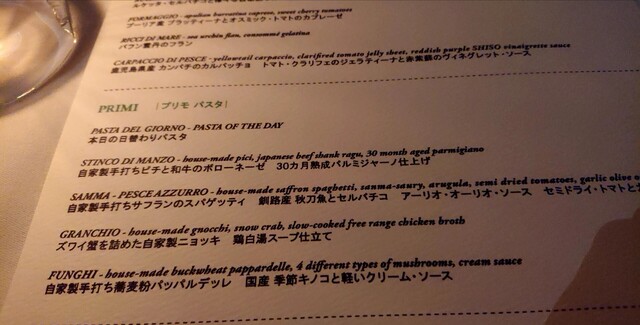 FORMAGGIO - apulian burratina caprese, sweet cherry tomatoes
プーリア産 ブラッティーナとオスミック・トマトのカプレーゼ
RICCI DI MARE - sea urchin flan, consommé gelatina
バフン雲丹のフラン
CARPACCIO DI PESCE - yellowtail carpaccio, clarified tomato jelly sheet, reddish purple SHISO vinaigrette sauce
鹿児島県産 カンパチのカルパッチョ トマト・クラリフェのジェラティーナと赤紫蘇のヴィネグレット・ソース
PRIMI |プリモ パスタ|
PASTA DEL GIORNO - PASTA OF THE DAY
本日の日替わりパスタ
STINCO DI MANZO - house-made pici, japanese beef shank ragu, 30 month aged parmigiano
自家製手打ちピチと和牛のボローネーゼ 30カ月熟成パルミジャーノ仕上げ
SAMMA - PESCE AZZURRO - house-made saffron spaghetti, sanma-saury, arugula, semi dried tomatoes, garlic olive
自家製手打ちサフランのスパゲッティ 釧路産 秋刀魚とセルバチコ アーリオ・オーリオ・ソース セミドライ・トマトと
GRANCHIO - house-made gnocchi, snow crab, slow-cooked free range chicken broth
ズワイ蟹を詰めた自家製ニョッキ 鶏白湯スープ仕立て
FUNGHI - house-made buckwheat pappardelle, 4 different types of mushrooms, cream sauce
自家製手打ち蕎麦粉パッパルデッレ 国産 季節キノコと軽いクリーム・ソース